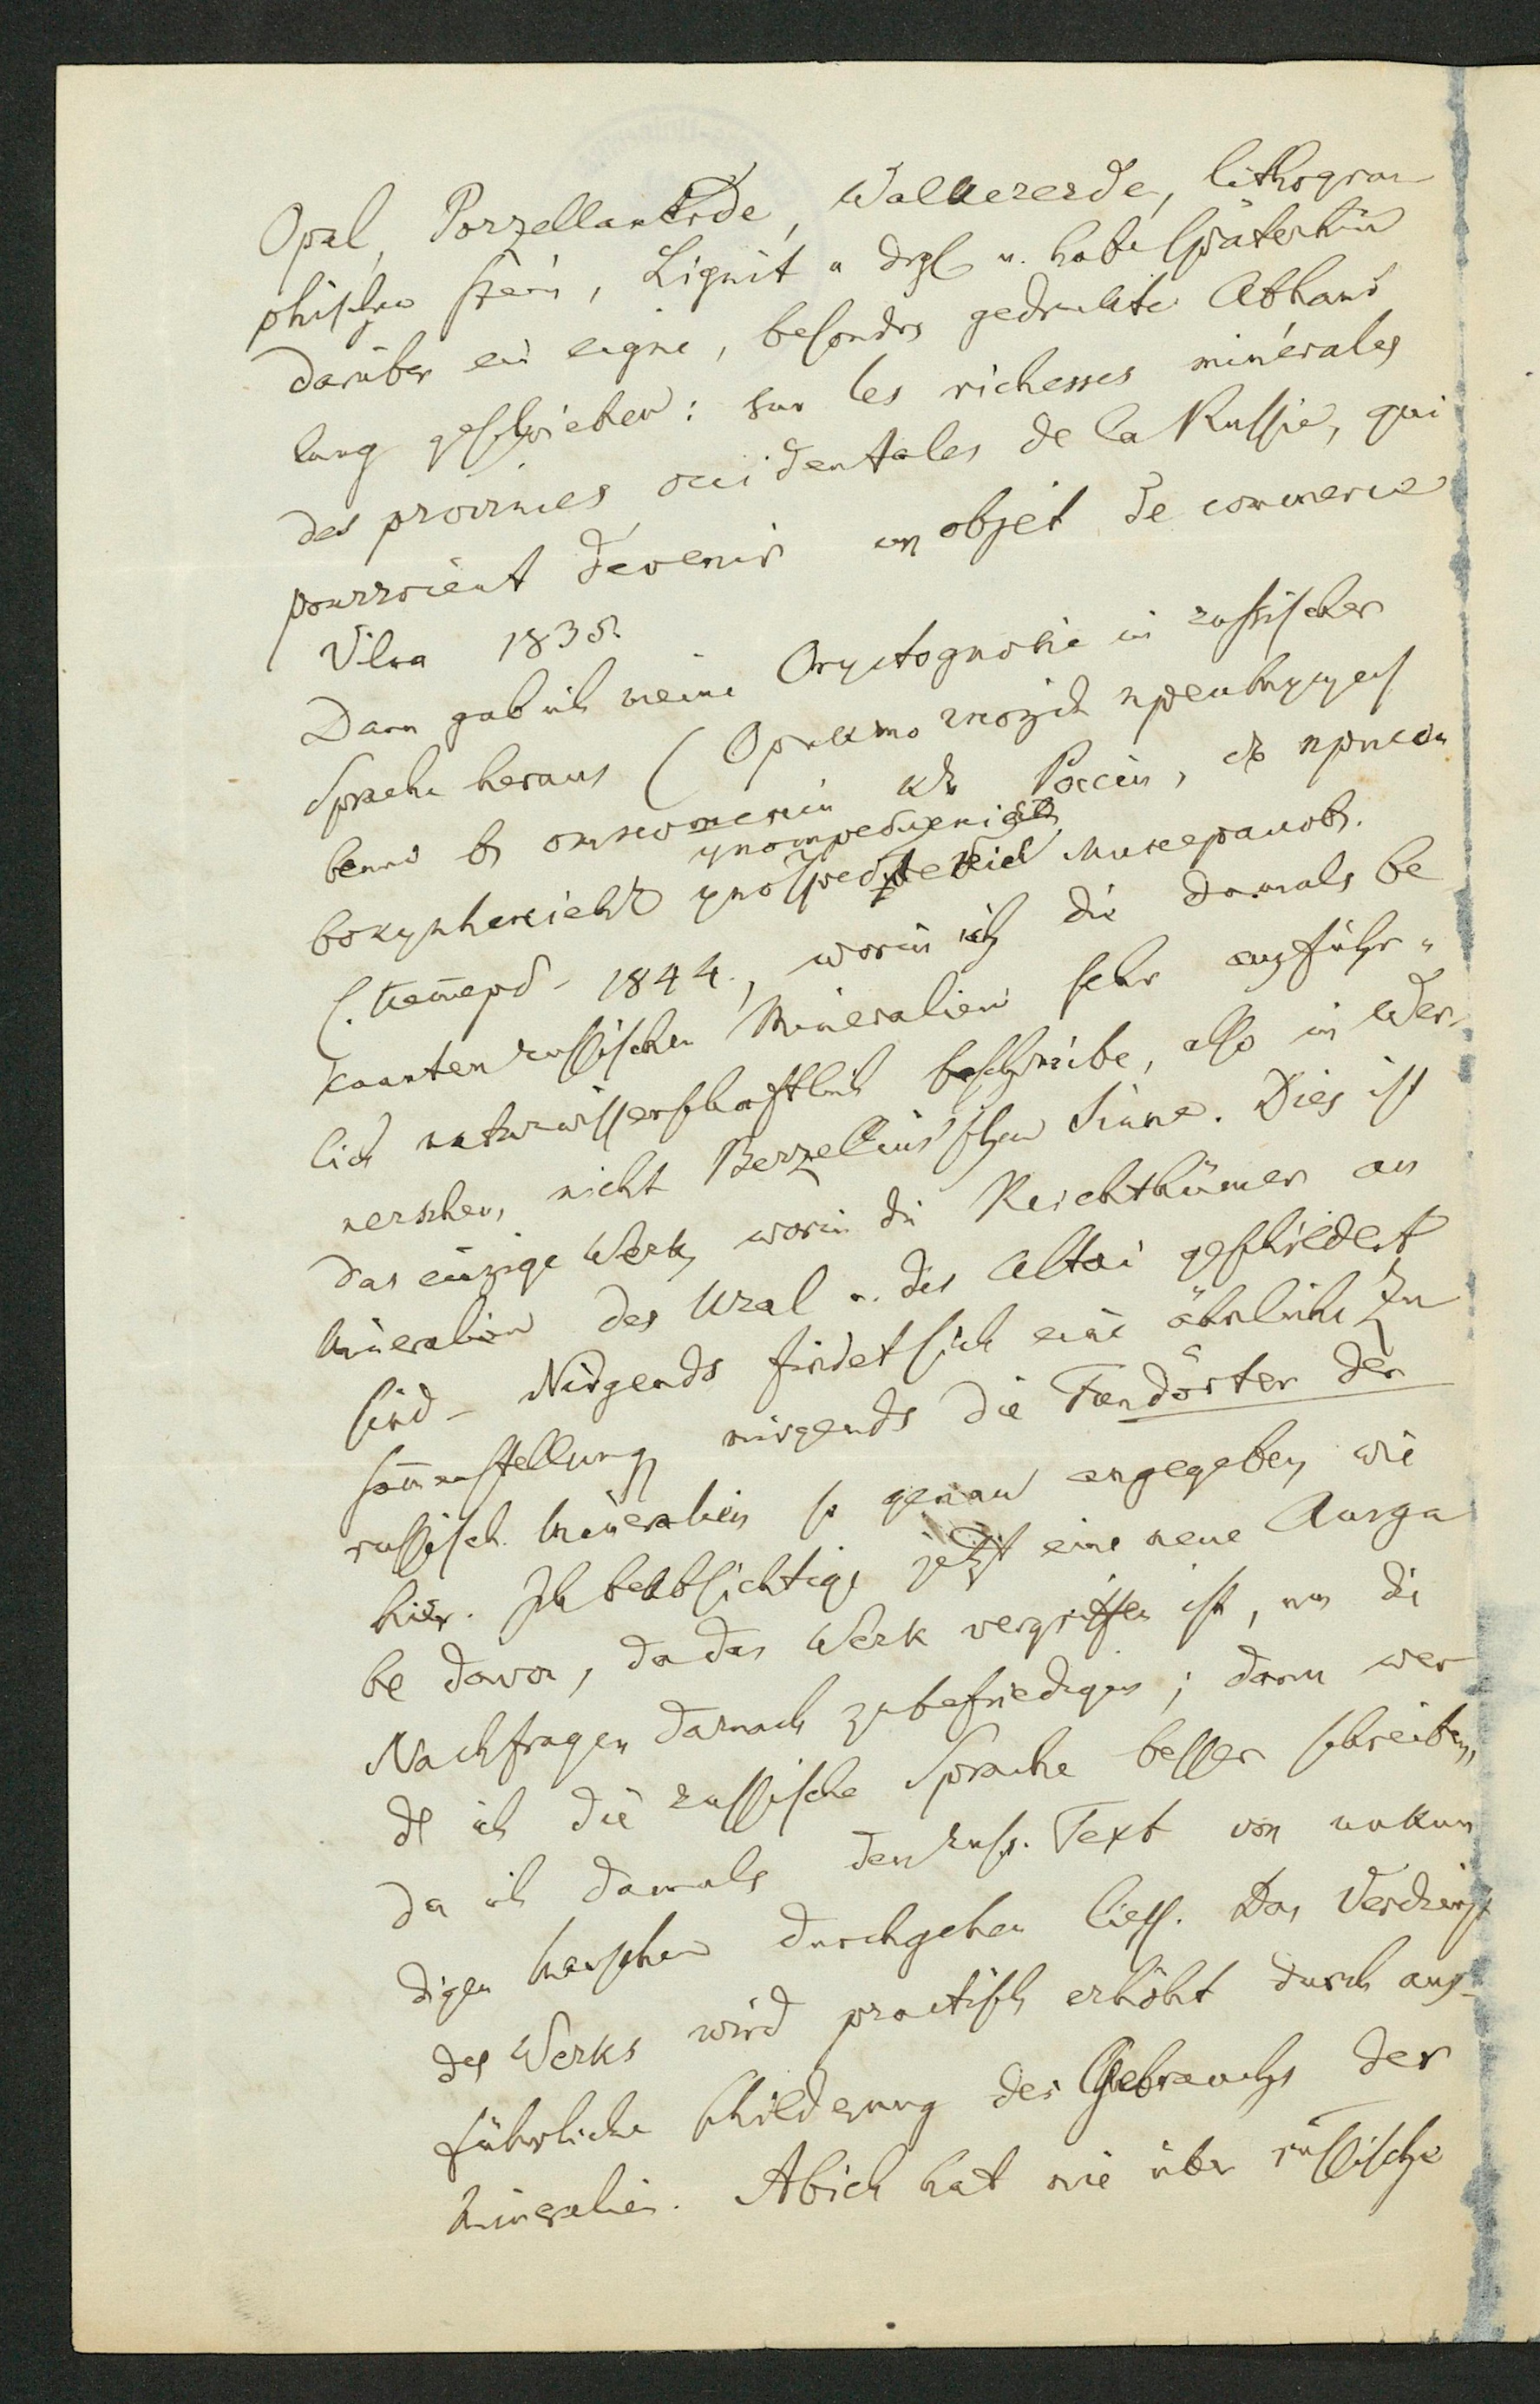 Opal, Porzellanerde, Walkererde, lithogra-
phischen Stein, Lignit u drgl u. habe späterhin
darüber ein eigne, besonders gedrukte Abhand
lung geschrieben: sur les richesses minérales
des provinces occidentales de la Russie, qui
pourroient devenir un objet de commerce
Vilna 1835.
Dann gab ich meine Oryctognosie in russischer
Sprache heraus (Ориктогнозія преимущест
венно въ отношеніи къ Россіи, съ присово
употребленія
вокупленіемъ минераловъ.
С. Петерб. 1844., worin ich die damals be
kannten russischen Mineralien sehr ausführ-
lich naturwissenschaftlich beschreibe, also in Wer-
nerschen, nicht Berzelius'schen Sinne. Dies ist
das einzige Werk, worin die Reichthümer an
Mineralien des Ural u. des Altai geschildert
sind – Nirgends findet sich eine ähnliche Zu
sam̄enstellung, nirgends die Fundörter der
russisch. Mineralien so genau angegeben, wie
hier. Ich beabsichtige jetzt eine neue Ausga
be davon, da das Werk vergriffen ist, um die
Nachfragen darnach zu befriedigen; dann wer
de ich die russische Sprache besser schreiben,
da ich damals den russ. Text von unkun
digen Menschen durchgehen liess. Das Verdienst
des Werks wird practisch erhöht durch aus-
führliche Schilderung des Gebrauchs der
Mineralien. Abich hat nie über russische